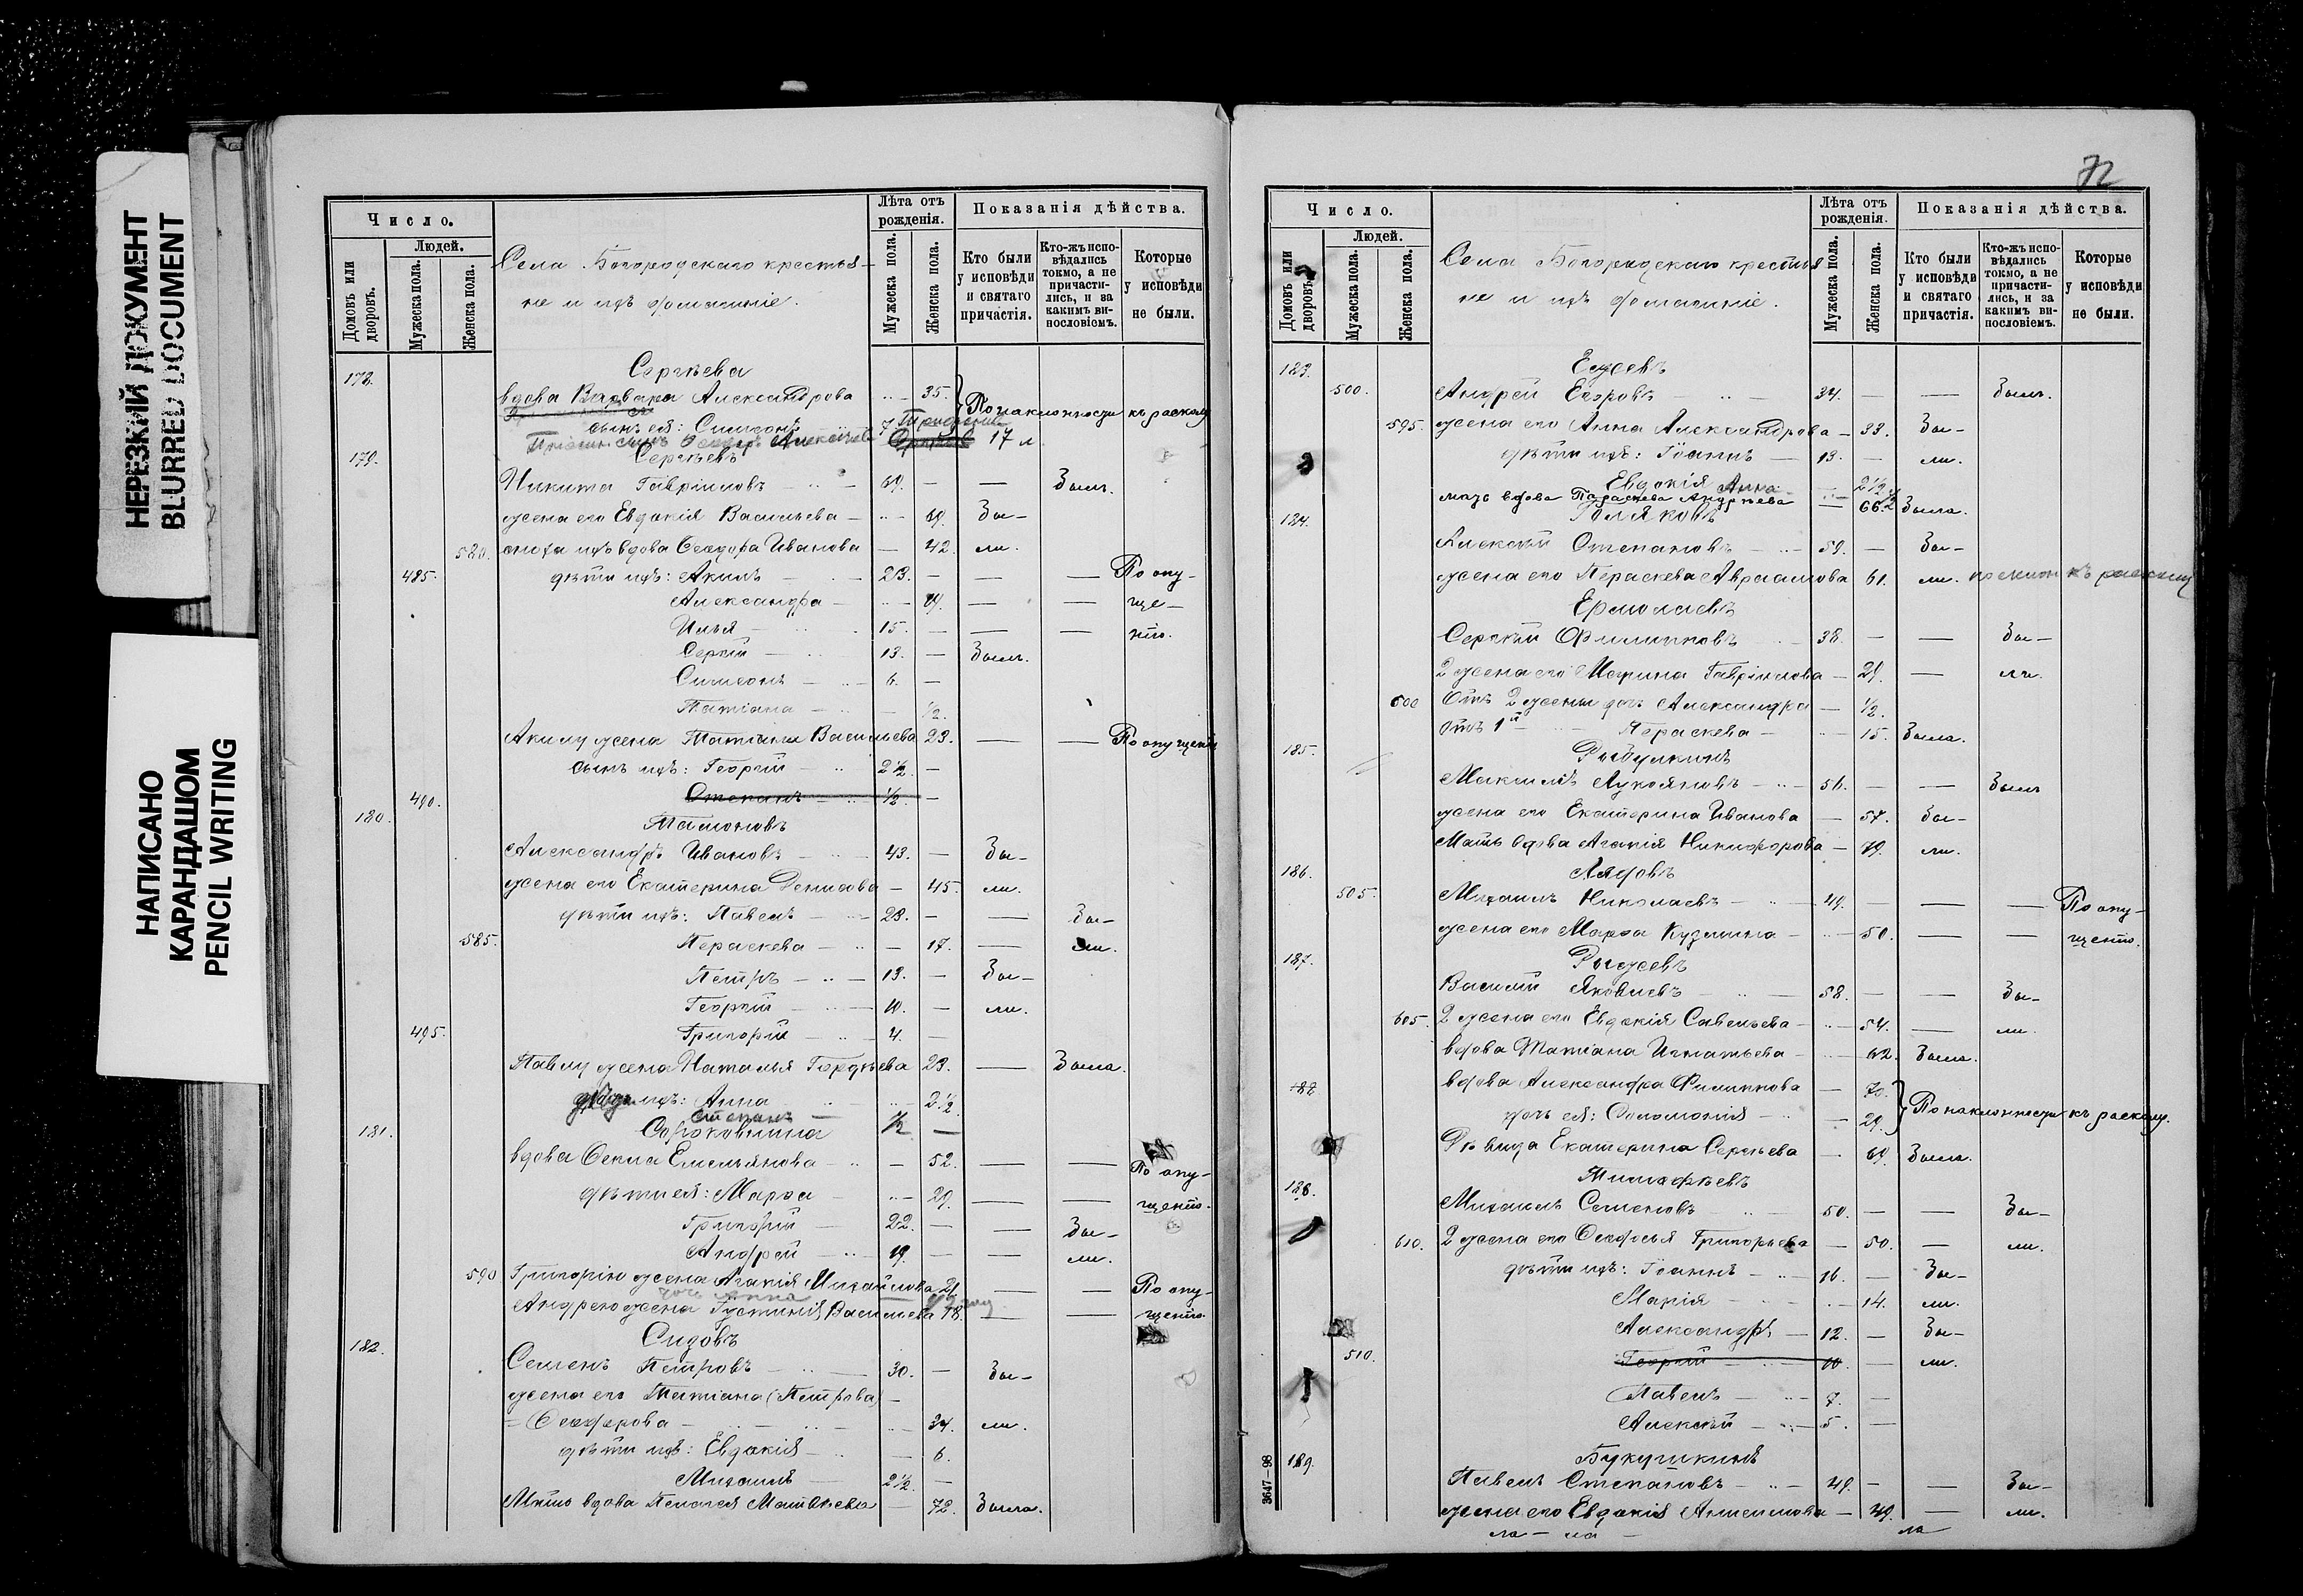 НЕРЕЗКИЙ ДОКУМЕНТ
BLURRED DOCUMENT
НАПИСАНО
КАРАНДАШОМ
PENCIL WRITING
Число.
Лѣта отъ рожденія.
Показанія дѣйства.
Домовъ или дворовъ.
Людей.
Мужеска пола.
Женска пола.
Села Богородскаго крестья-
не и ихъ домашніе.
Мужеска пола.
Женска пола.
Кто были у исповѣди и святаго причастія.
Кто-жъ исповѣдались токмо, а не причастились, и за какимъ винословіемъ.
Которые у исповѣди не были.
178. Сергѣева
вдова Варвара Александрова 35. По наклонности къ расколу
сынъ ея: Симеонъ 7
Алексѣевъ 17 л
179. Сергѣевъ
Никита Гавріиловъ 69. — — Былъ.
жена его Евдокія Васильева — 69. Бы-
580. сноха ихъ вдова Ѳеодора Иванова — 42. ли.
485. дѣти ихъ: Акимъ 23. — — — По опу-
Александра — 19. — — ще-
Илья — 15. — — — нію.
Сергій — 13. — Былъ.
Симеонъ — 6. —
Татіана — — ½.
Акиму жена Татіана Васильева 23. — — По опущенію
сынъ ихъ: Георгій — 2½. —
490. Степанъ — ½. —
180. Мамоновъ
Александръ Ивановъ — 43. — Бы-
жена его Екатерина Денисова — 45. ли.
дѣти ихъ: Павелъ — 23. — — Бы-
585. Параскева — — 17. — ли.
Петръ — 13. — Бы-
Георгій — 10. — ли.
495. Григорій — 4. —
Павлу жена Наталья Гордѣева 23. — Была.
ихъ: Анна — 2½.
Степанъ — ½ —
181. Сороковнина
вдова Ѳекла Емельянова — — 52. — — По опу-
дѣти ея: Марѳа — 29. — — щенію.
Григорій — 22. — — Бы-
Андрей — 19. — — ли.
590 Григорію жена Агапія Михайлова 21. — — По опу-
дочь Анна
Андрею жена Іустинія Васильева 18. — — щенію.
182. Сизовъ
Семенъ Петровъ — 30. — Бы-
жена его Татіана (Петрова) —
= Ѳеодорова — 34. ли.
дѣти ихъ: Евдокія — — 6.
Михаилъ — 2½. —
Мать вдова Пелагея Матвѣева — 72. Была.
72
Число.
Лѣта отъ рожденія.
Показанія дѣйства.
Домовъ или дворовъ.
Людей.
Мужеска пола.
Женска пола.
Села Богородскаго крестья
не и ихъ домашніе.
Мужеска пола.
Женска пола.
Кто были у исповѣди и святаго причастія.
Кто-жъ исповѣдались токмо, а не причастились, и за какимъ винословіемъ.
Которые у исповѣди не были.
183.
500. Андрей Егоровъ — 34. — — Былъ.
595. жена его Анна Александрова — 33. Бы-
дѣти ихъ: Іоаннъ — 13. — ли.
Евдокія Анна — 2½
мать вдова Параскева Андреева — 66. Была.
184. Поляковъ
Алексѣй Степановъ — 59. — Бы-
жена его Параскева Авраамова 61. ли. къ расколу
Ермолаевъ
Сергѣй Филипповъ — 38. — — Бы-
2 жена его Марина Гавріилова — 29. — ли.
600 Отъ 2 жены дочь Александра — ½.
Отъ 1й — Параскева — 15. Была.
185. Рыбулкинъ
Максимъ Лукояновъ — 56. — — Былъ
жена его Екатерина Иванова — 57. Бы-
Мать вдова Агапія Никифорова — 79. ли.
186. Лядовъ
505. Михаилъ Николаевъ — 49. — — — По опу-
жена его Марѳа Кузмина — 50. — — щенію.
187. Рыжеевъ
Василій Яковлевъ — 58. — — Бы-
605. 2 жена его Евдокія Савельева — 54. — ли.
вдова Татіана Игнатьева — 62. Была.
188 вдова Александра Филиппова — 70. По наклонности къ расколу.
дочь ея: Соломонія — 29.
Дѣвица Екатерина Сергѣева — 69. Была.
188. Тимофѣевъ
Михаилъ Семеновъ — 50. — — Бы-
610. 2 жена его Ѳеодосья Григорьева — 50. — ли.
дѣти ихъ: Іоаннъ — 16. — Бы-
Марія — 14. ли.
Александръ — 12. — Бы-
510. Георгій — 10. — ли.
Павелъ — 7. —
Алексѣй — 5. —
189. Букушкинъ
Павелъ Степановъ — 49. — — Бы-
жена его Евдокія Анисимова — 49. — ли.
3647—98